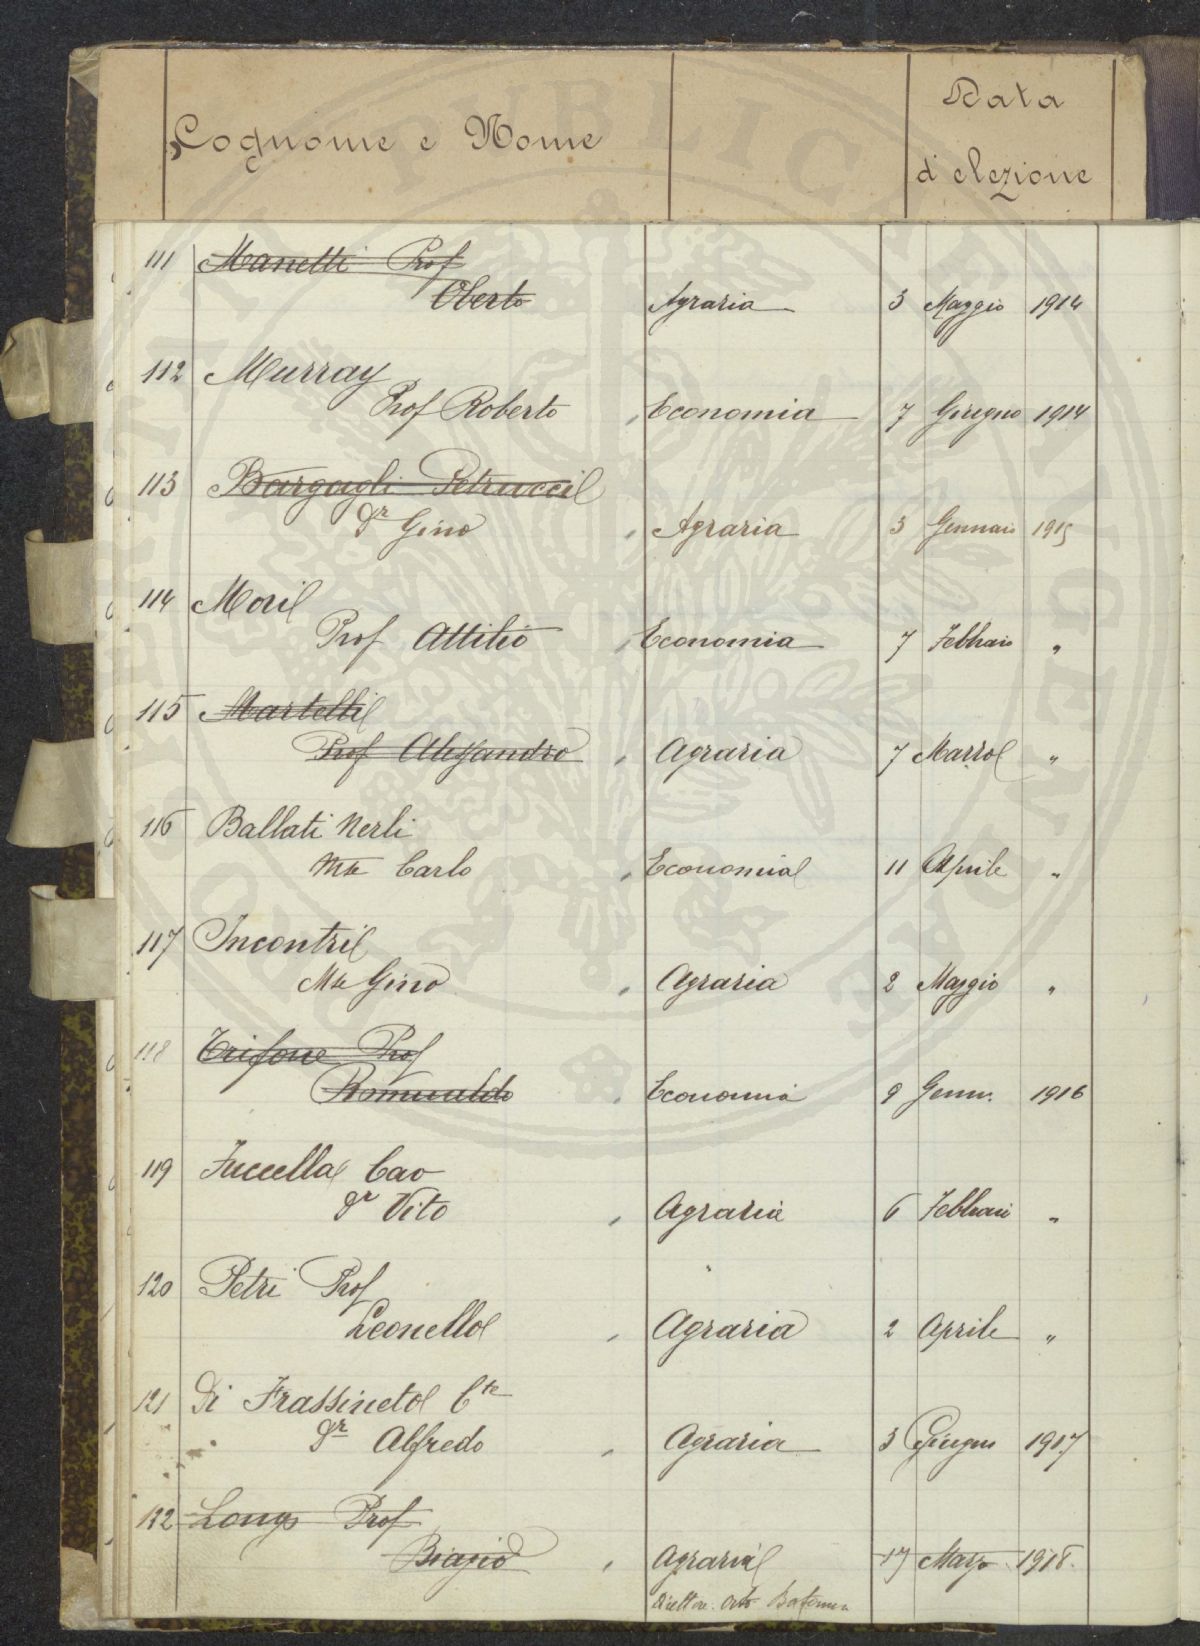 Cognome e Nome
Data
d'elezione
111 Manetti Prof
Oberto Agraria 3 Maggio 1914
112 Murray
Prof Roberto " Economia 7 Giugno 1914
113 Bargagli Petrucci
Dr Gino " Agraria 3 Gennaio 1915
114 Mori
Prof Attilio " Economia 7 Febbraio "
115 Martelli
Prof Alessandro " Agraria 7 Marzo "
116 Ballati Nerli
Mse Carlo " Economia 11 Aprile "
117 Incontri
Mse Gino " Agraria 2 Maggio "
118 Trifone Prof
Romualdo " Economia 9 Genn. 1916
119 Fuccella Cav
Dr Vito " Agraria 6 Febbraio "
120 Petri Prof
Leonello " Agraria 2 Aprile "
121 Di Frassineto Cte
Dr Alfredo " Agraria 3 Giugno 1917
122 Longo Prof
Biagio " Agraria 17 Marzo 1918.
Direttore Orto